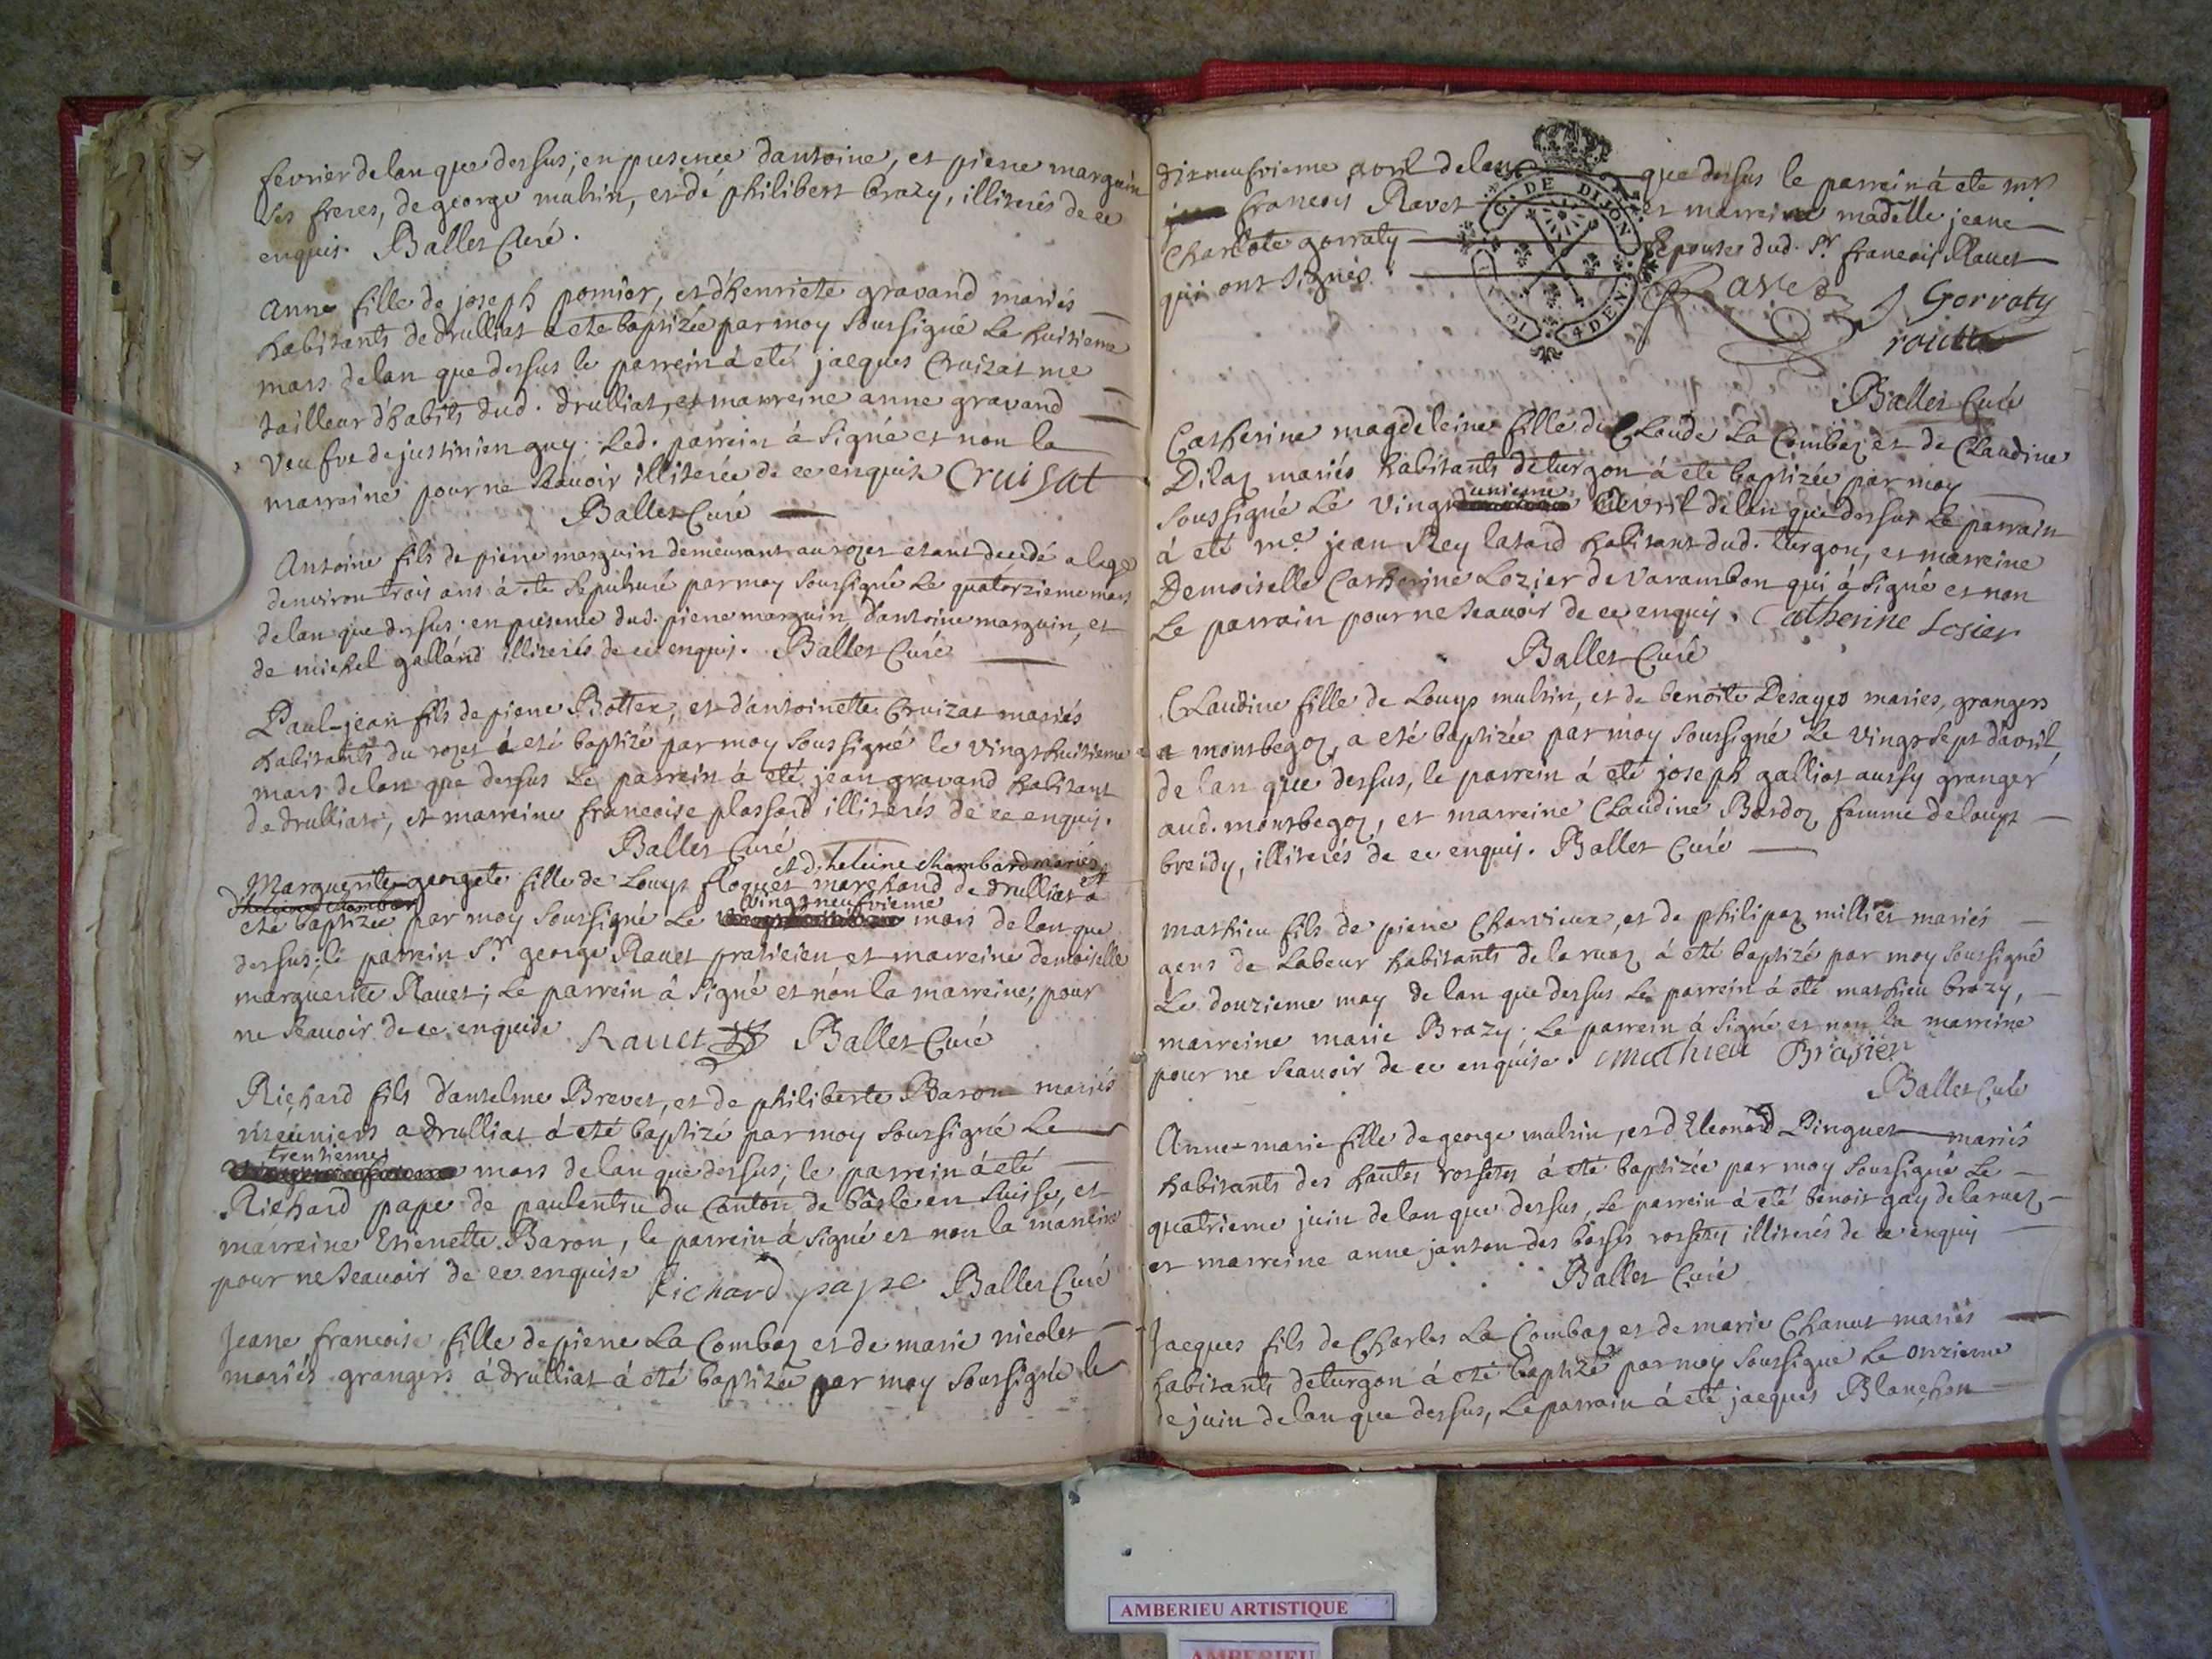 fevrier de lan que dessus; en presence dantoine, et piere marguin
ses freres, de george mulsin, et de philibert brazy, illiterés de ce
enquis. Ballet Curé.
Anne fille de joseph pomier, et d'henriete gravand mariés
habitants de drulliat a eté baptizée par moy soussigné le huitieme
mars de lan que dessus le parrein à eté jacques Cruizat me
tailleur d'habits dud. drulliat, et marreine anne gravand
veufve de justinien guy. Led. parrein à signé et non la
marreine pour ne scavoir illiterée de ce enquise Cruisat
Ballet Curé
Antoine fils de piere marguin demeurant au rozet etant decedé a lage
denviron trois ans à eté sepulturé par moy soussigné le quatorzieme mars
de lan que dessus. en presence dud. piere marguin, d'antoine marguin, et
de michel galland illiterés de ce enquis. Ballet Curé
Paul-jean fils de piere Bottex, et d'antoinette Cruizat mariés
habitants du rozet à eté baptizé par moy soussigné le vingt huitieme
mars de lan que dessus le parrein à eté jean gravand habitant
de drulliat, et marreine francoise plassard illiterés de ce enquis.
Ballet Curé
et d. heleine chambard mariés
Marguerite georgete fille de Louys floquet marchand de drulliat a
vingt neufvieme
eté baptizée par moy soussigné Le mars de lan que
dessus; le parrein Sr. george Ravet praticien et marreine demoiselle
marguerite Ravet; Le parrein à signé et non la marreine; pour
ne scavoir de ce enquise Ravet Ballet Curé
Richard fils d'antelme Brevet, et de philiberte Baron mariés
meuniers a drulliat à eté baptizé par moy soussigné Le
trentieme
mars de lan que dessus; le parrein à eté
Richard pape de paulentru du Canton de bâsle en suisse, et
marreine Etienette Baron, le parrein à signé et non la marreine
pour ne scavoir de ce enquise Richard pape Ballet Curé
Jeane francoise fille de piere La Combaz et de marie nicolet
mariés grangers à drulliat à eté baptizée par moy soussigné le
dix neufvieme avril de lan que dessus le parrein à eté mr
francois Ravet et marreine madelle jeane
Charlote gorraty Epouse dud. Sr. francois Ravet
qui ont signés.
G. DE DIJON
DEN
Ravet J Gorraty
Ballet Curé
Catherine magdeleine fille de Claude La Combaz et de Claudine
Dilaz mariés habitants de turgon à eté baptizée par moy
unieme
soussigné Le vingt avril de lan que dessus Le parrain
à eté me. jean Rey habitant dud. turgon, et marreine
Demoiselle Catherine Lozier de Varambon qui à signé et non
Le parrain pour ne scavoir de ce enquis. Catherine Losier
Ballet Curé
Claudine fille de Louys mulsin, et de benoite Desayes maries, grangers
a montbegoz, a eté baptizée par moy soussigné Le vingt sept d'avril
de lan que dessus, le parrein à eté joseph galliot aussy granger
aud. montbegoz, et marreine Claudine Bardoz femme de louys
breidy, illiterés de ce enquis. Ballet Curé
mathieu fils de piere Charvieux, et de philipaz milliet mariés
gens de Labeur habitants de la ruaz à eté baptizé par moy soussigné
Le douzieme may de lan que dessus Le parrein à eté mathieu brazy,
marreine marie Brazy. Le parrein à signé et non la marreine
pour ne scavoir de ce enquise. mathieu Brasier
Ballet Curé
Anne-marie fille de george mulsin, et d'Eleonord Pinguet mariés
habitants des hautes rossetes à eté baptizée par moy soussigné Le
quatrieme juin de lan que dessus, Le parrein à eté benoit gay de la ruaz
et marreine anne janton des basses rossetes illiterés de ce enquis
Ballet Curé
Jacques fils de Charles La Combaz et de marie Chanut mariés
habitants de turgon à eté baptizé par moy soussigné Le onzieme
de juin de lan que dessus, Le parrain à eté jacques Blanchon
AMBERIEU ARTISTIQUE
AMBERIEU